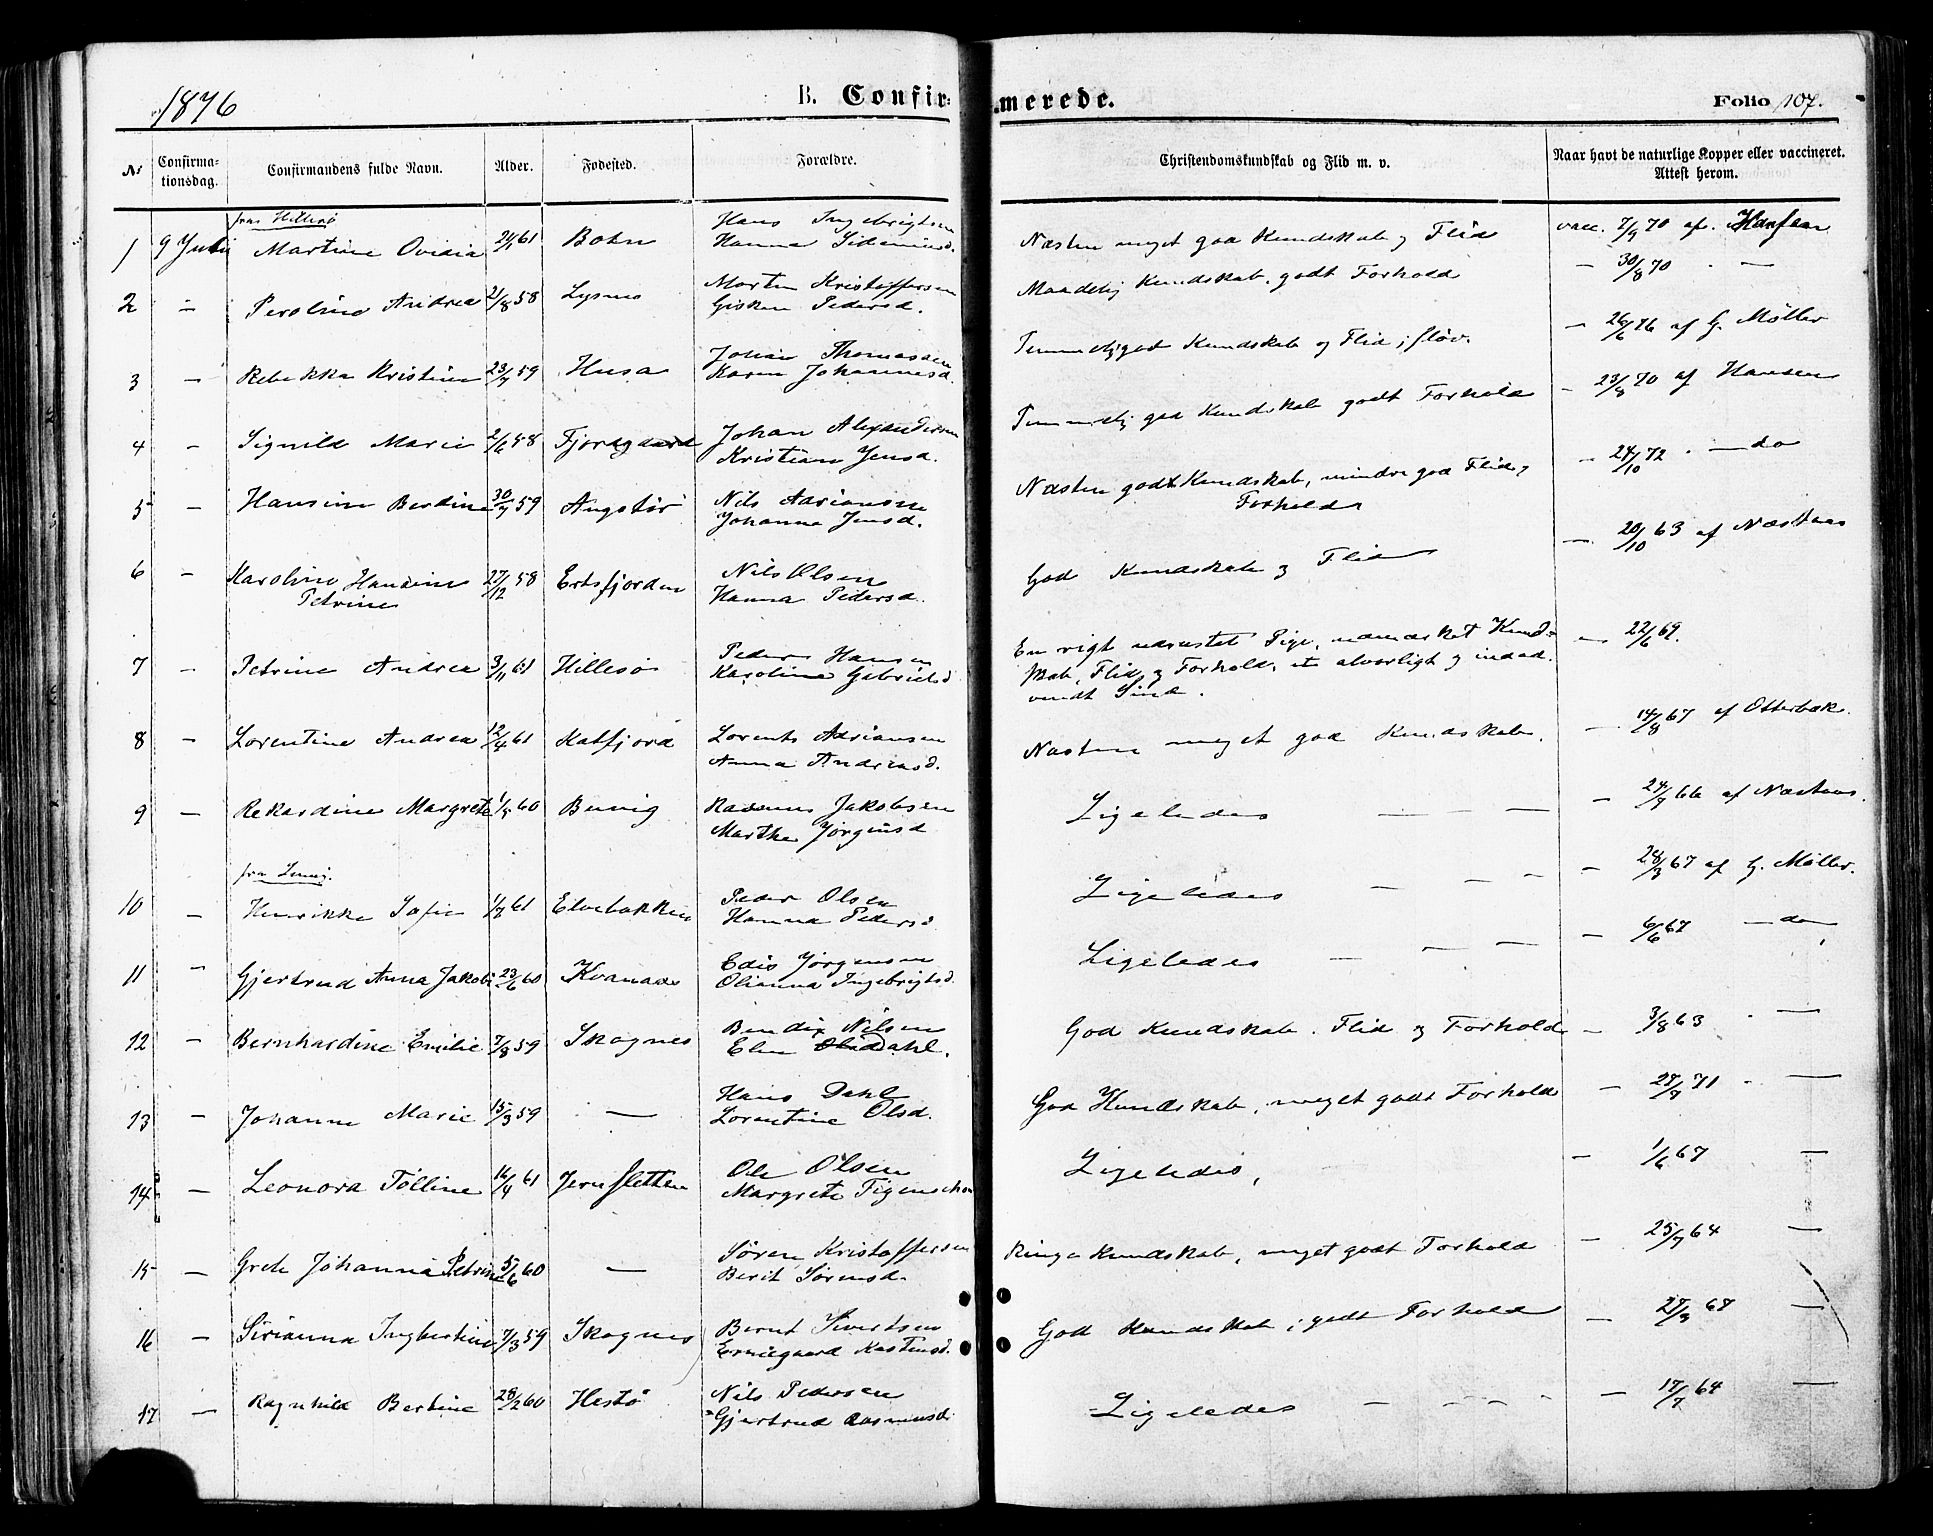 1876
B. Confir-
merede.
Folio 107.
No
Confirma-
tionsdag.
Confirmandens fulde Navn.
Alder.
Fødested.
Forældre.
Christendomskundskab og Flid m. v.
Naar havt de naturlige Kopper eller vaccineret.
Attest herom.
fra Hillesø
1 9 Juli Martine Ovidia 61 Botn Hans Ingebrigtsen
Hanna
Næsten meget god Kundskab og Flid
vacc. 7/9 70 af
2 — Peroline Andrea 2/8 58 Lysnes Morten Kristoffersen
Gisken Pedersd.
Maadelig Kundskab, godt Forhold
— 30/8 70 . —
3 — Rebekka Kristine 23/7 59 Husa Johan Thomassen
Karen Johannesd.
Temmelig god Kundskab og Flid; sløv.
— 26/6 76 af G. Møller
4 — Signild Marie 2/6 58 Fjordgaard Johan Alexandersen
Kristian Jensd.
Temmelig god Kundskab godt Forhold
— 23/8 70 af Hansen
5 — Hansine Berdine 30/7 59 Angstør Nils Adriansen
Johanna Jensd.
Næsten godt Kundskab, mindre god Flid og
Forhold
— 24/10 72 . — do
6 — Karoline Hansine 27/12 58 Ersfjorden Nils Olsen
Petrine Hanna Pedersd.
God Kundskab og Flid
— 20/10 63 af Næstaas
7 — Petrine Andrea 3/11 61 Hillesø Peder Hansen
Karoline Gabrielsd
En rigt udrustet Pige, udmærket Kund-
skab, Flid og Forhold, et alvorligt og indad-
vendt Sind.
— 22/6 69.
8 — Lorentine Andrea 12/4 61 Katfjord Lorents Adriansen
Anna Andreasd.
Næsten meget god Kundskab.
— 14/8 67 af Otterbek.
9 — Rekardine Margrete 60 Buvig Rasmus Jakobsen
Marthe Jørgensd
Ligeledes — — —
— 24/9 66 af Næstaas.
fra
10 — Henrikke Sofie 61 Elvebakken Peder Olsen
Hanna Pedersd
Ligeledes — — —
— 28/3 67 af G. Møller.
11 — Gjertrud Anna Jakobi 23/6 60 Kvanaas Edis Jørgensen
Olianna Ingebrigtsd.
Ligeledes — — —
— 6/6 67 — do
12 — Bernhardine Emilie 7/8 59 Skognes Bendix Nilsen
Elen Dahl.
God Kundskab. Flid og Forhold
— 3/8 63 . —
13 — Johanne Marie 15/3 59 — Hans Dahl
Lorentine Olsd.
God Kundskab, meget godt Forhold
— 27/7 71 . —
14 — Leonora Tolline 16/4 61 Jernsletten Ole Olsen
Margrete Figenschou
Ligeledes,
— 1/6 67 —
15 — Grete Johanna Petrine 5/6 60 — Søren Kristoffersen
Berit Sørensd.
Ringe Kundskab, meget godt Forhold
— 25/7 64 —
16 — Sirianna Ingbertine 7/3 59 Skognes Bernt Sivertsen
Ermegaard Kastensd.
God Kundskab; godt Forhold
— 67 —
17 — Ragnhild Bertine 28/2 60 Hestø Nils Pedersen
Gjertrud Rasmusd.
Ligeledes — — — —
— 17/7 64 —